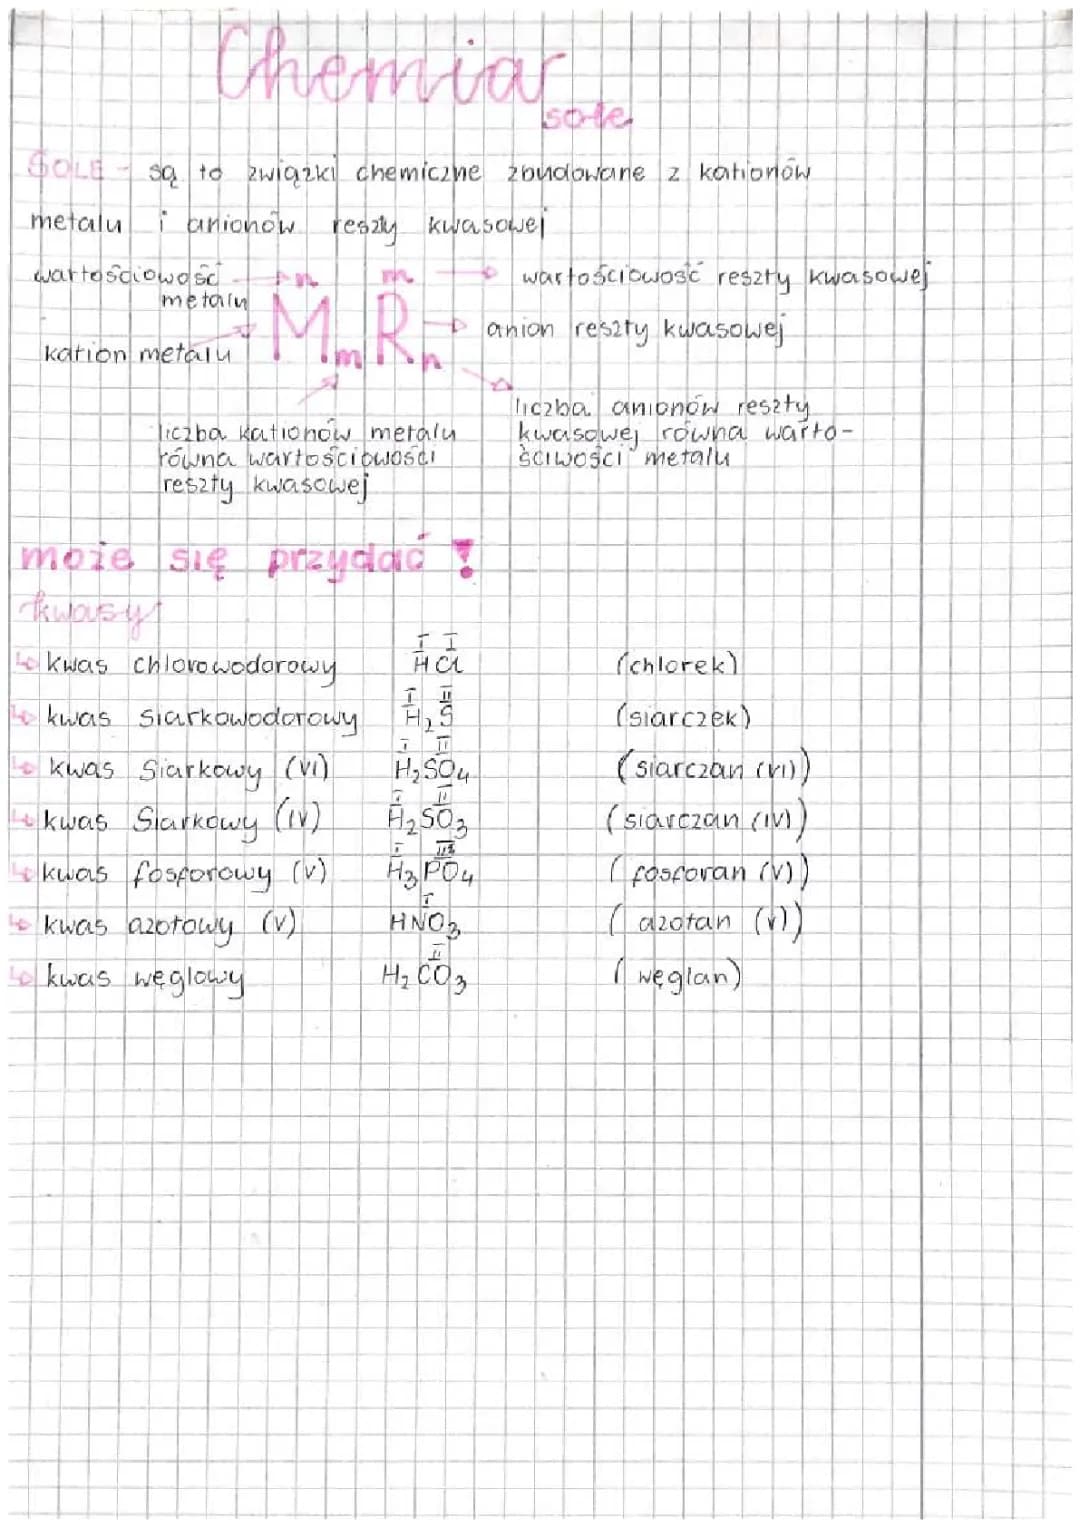 Chemia
sole
SOLE - są to związki chemiczne zbudowane z kationów
metalu i anionów reszty kwasowej
wartościowość metalu
n m
wartościowość reszty kwasowej
kation metalu
MmRn
anion reszty kwasowej
liczba kationów metalu
równa wartościowości
reszty kwasowej
liczba anionów reszty
kwasowej równa warto-
ściwości metalu
może się przydać !
kwasy
kwas chlorowodorowy HCl I I (chlorek)
kwas siarkowodorowy H₂S I II (siarczek)
kwas Siarkowy (VI) H₂SO₄ I II (siarczan (VI))
kwas Siarkowy (IV) H₂SO₃ I II (siarczan (IV))
kwas fosforowy (V) H₃PO₄ I III (fosforan (V))
kwas azotowy (V) HNO₃ I (azotan (V))
kwas węglowy H₂CO₃ II (węglan)